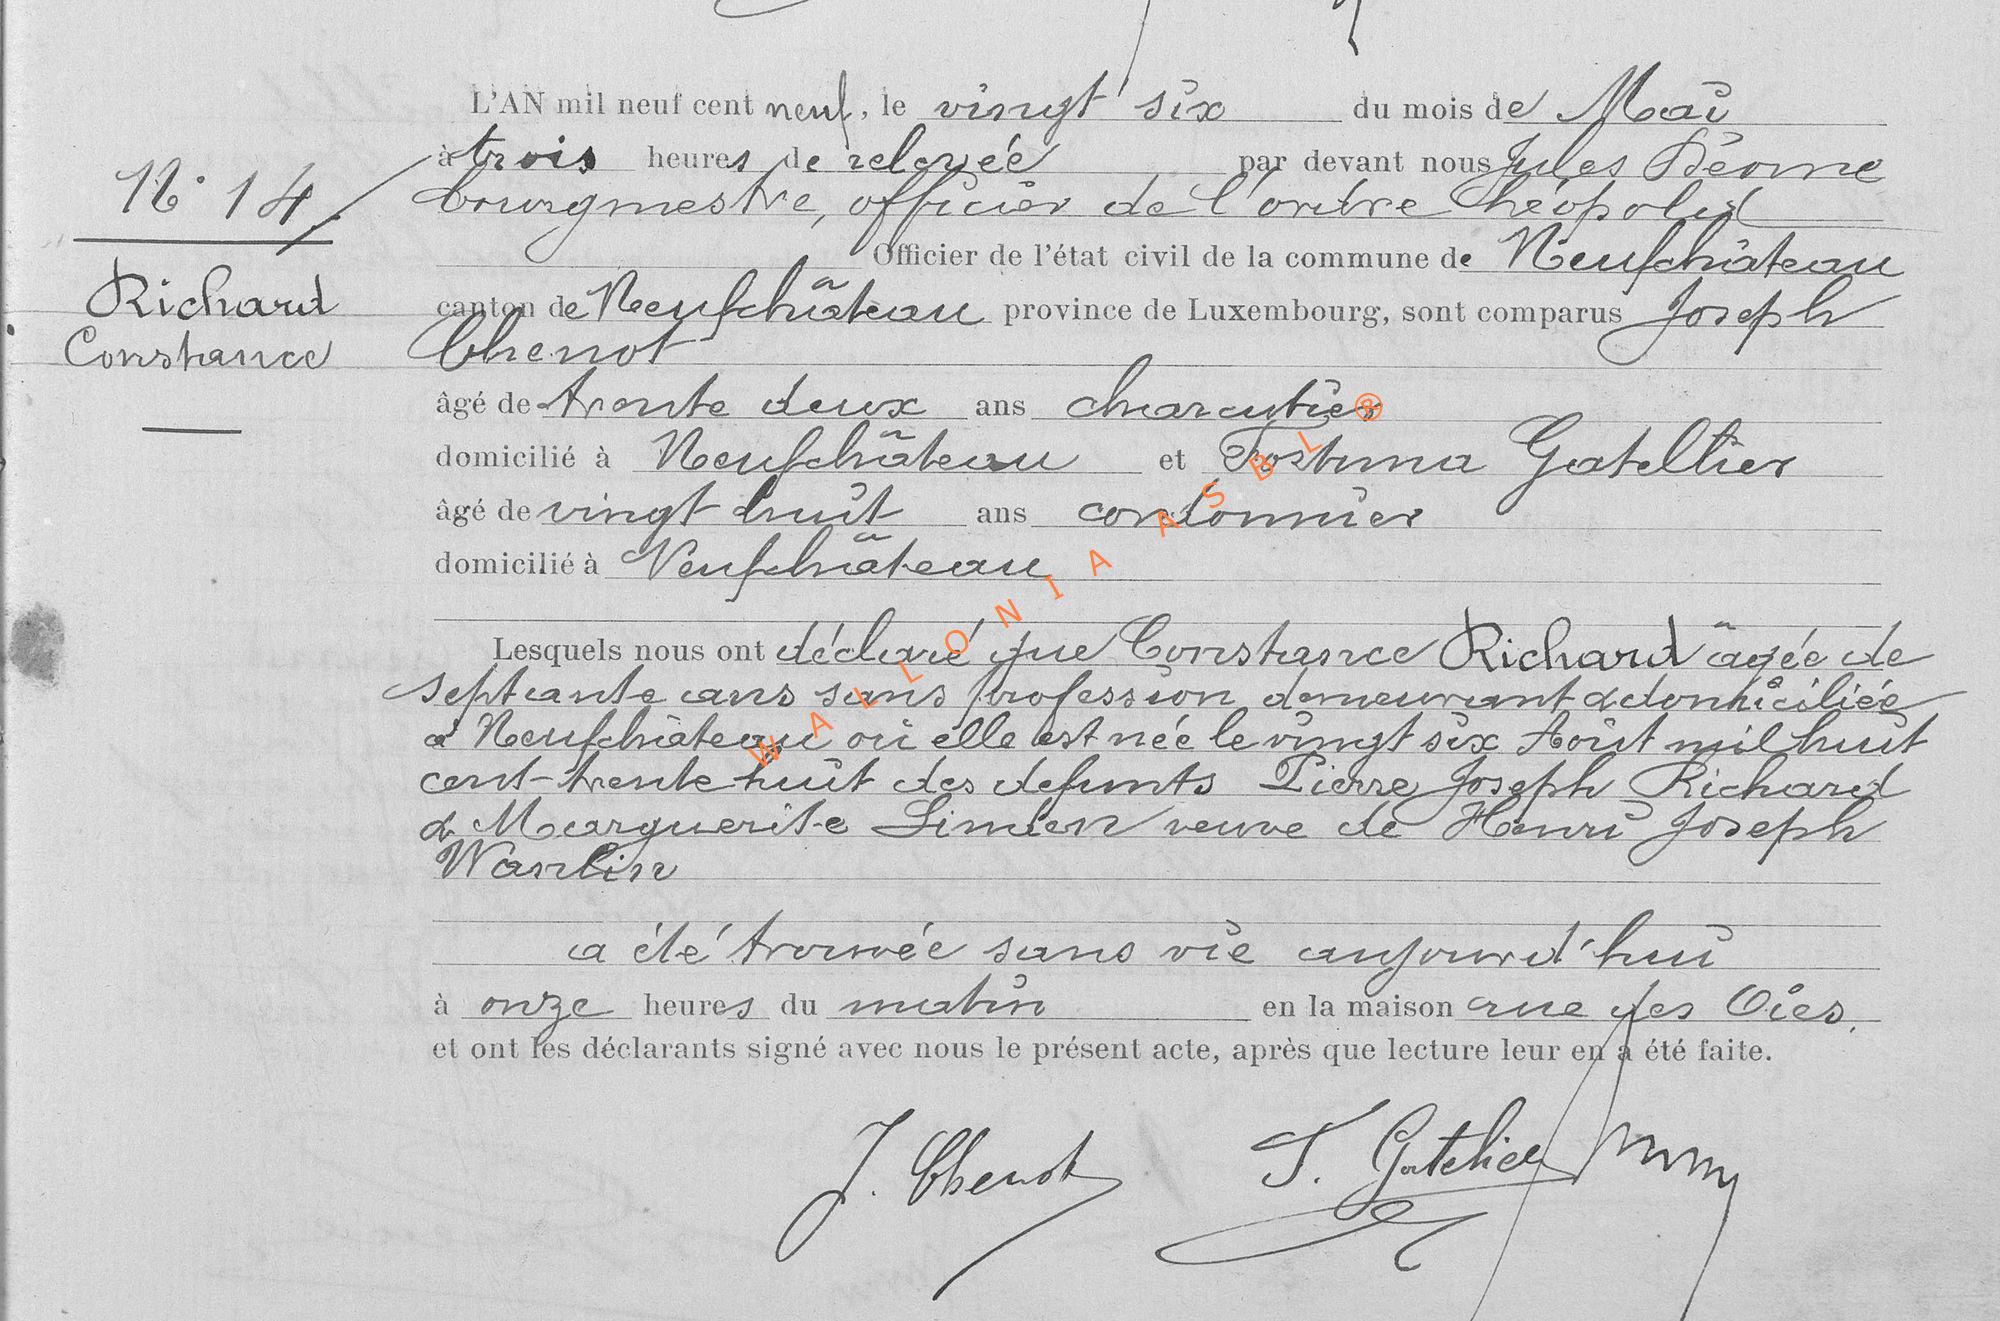 L'AN mil neuf cent neuf, le vingt six du mois de Mai
à trois heures de relevée par devant nous Jules
N° 14 bourgmestre, officier de l'ordre Léopold
Officier de l'état civil de la commune de Neufchâteau
Richard
canton de Neufchâteau province de Luxembourg, sont comparus Joseph
Constance
Chenot
âgé de trente deux ans charcutier
domicilié à Neufchâteau et Fortuna Gatellier
âgé de vingt huit ans cordonnier
domicilié à Neufchâteau
Lesquels nous ont déclaré que Constance Richard âgée de
septante ans sans profession demeurant & domiciliée
à Neufchâteau où elle est née le vingt six Août mil huit
cent-trente huit des defunts Pierre Joseph Richard
& Marguerite veuve de Henri Joseph
Wanlin
a été trouvée sans vie aujourd'hui
à onze heures du matin en la maison rue des Oies.
et ont les déclarants signé avec nous le présent acte, après que lecture leur en a été faite.
J. Chenot
WALLONIA ASBL ®